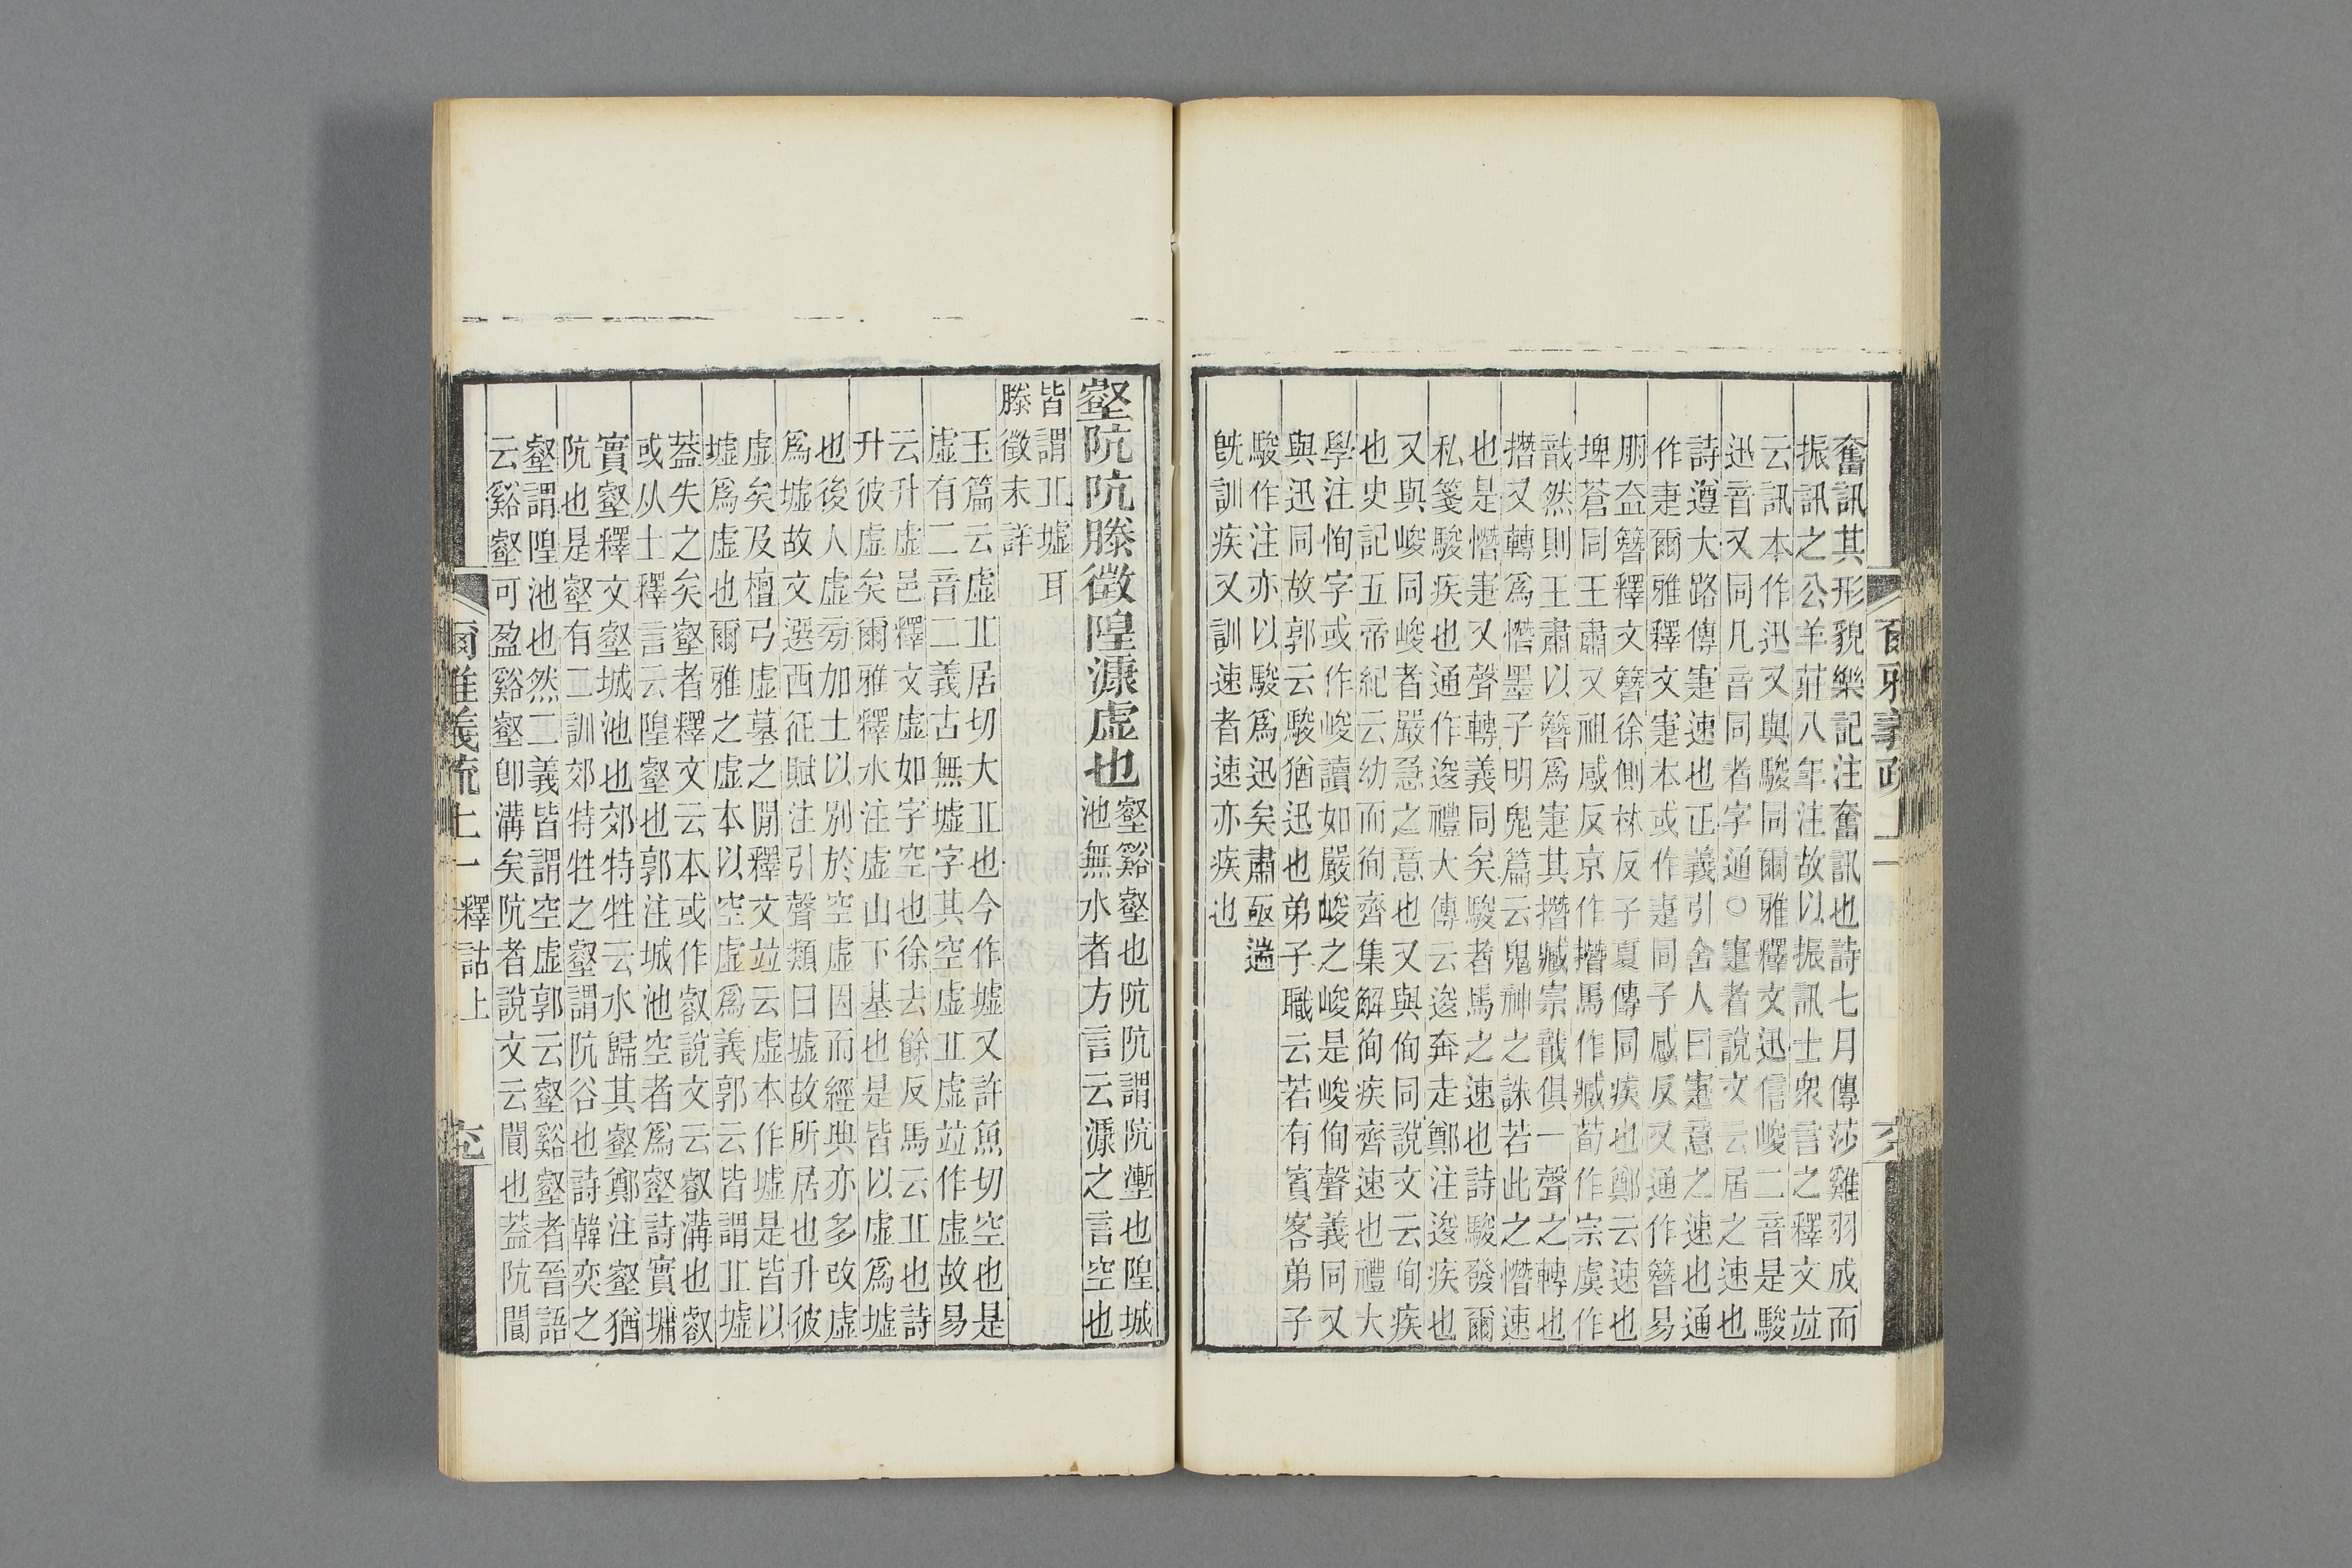 奮訊其形貌樂記注奮訊也詩七月傳莎雞羽成而
振訊之公羊莊八年注故以振訊士衆言之釋文竝
云訊本作迅又與駿同爾雅釋文迅信峻二音是駿
迅音又同凡音同者字通○疌者說文云居之速也
詩遵大路傳疌速也正義引舍人曰疌意之速也通
作疌爾雅釋文疌本或作疌同子感反又通作簪易
朋盍簪釋文簪徐側林反子夏傳同疾也鄭云速也
埤蒼同王肅又祖感反京作撍馬作臧荀作宗虞作
戠然則王肅以簪爲疌其撍臧宗戠俱一聲之轉也
撍又轉爲憯墨子明鬼篇云鬼神之誅若此之憯速
也是憯疌又聲轉義同矣駿者馬之速也詩駿發爾
私箋駿疾也通作逡禮大傳云逡奔走鄭注逡疾也
又與峻同峻者嚴急之意也又與侚同說文云侚疾
也史記五帝紀云幼而徇齊集解徇疾齊速也禮大
學注恂字或作峻讀如嚴峻之峻是峻侚聲義同又
與迅同故郭云駿猶迅也弟子職云若有賓客弟子
駿作注亦以駿爲迅矣肅亟遄
旣訓疾又訓速者速亦疾也
爾雅義疏 上一
壑阬阬滕徵隍漮虛也
壑谿壑也阬阬謂阬壍也隍城
池無水者方言云漮之言空也
皆謂丠墟耳
滕徵未詳
玉篇云虛丠居切大丠也今作墟又許魚切空也是
虛有二音二義古無墟字其空虛丠虛竝作虛故易
云升虛邑釋文虛如字空也徐去餘反馬云丠也詩
升彼虛矣爾雅釋水注虛山下基也是皆以虛爲墟
也後人虛旁加土以別於空虛因而經典亦多改虛
爲墟故文選西征賦注引聲類曰墟故所居也升彼
虛矣及檀弓虛墓之閒釋文竝云虛本作墟是皆以
墟爲虛也爾雅之虛本以空虛爲義郭云皆謂丠墟
葢失之矣壑者釋文云本或作叡說文云叡溝也叡
或从土釋言云隍壑也郭注城池空者爲壑詩實墉
實壑釋文壑城池也郊特牲云水歸其壑鄭注壑猶
阬也是壑有二訓郊特牲之壑謂阬谷也詩韓奕之
壑謂隍池也然二義皆謂空虛郭云壑谿壑者晉語
云谿壑可盈谿壑卽溝矣阬者說文云閬也葢阬閬
爾雅義疏 上一 釋詁上